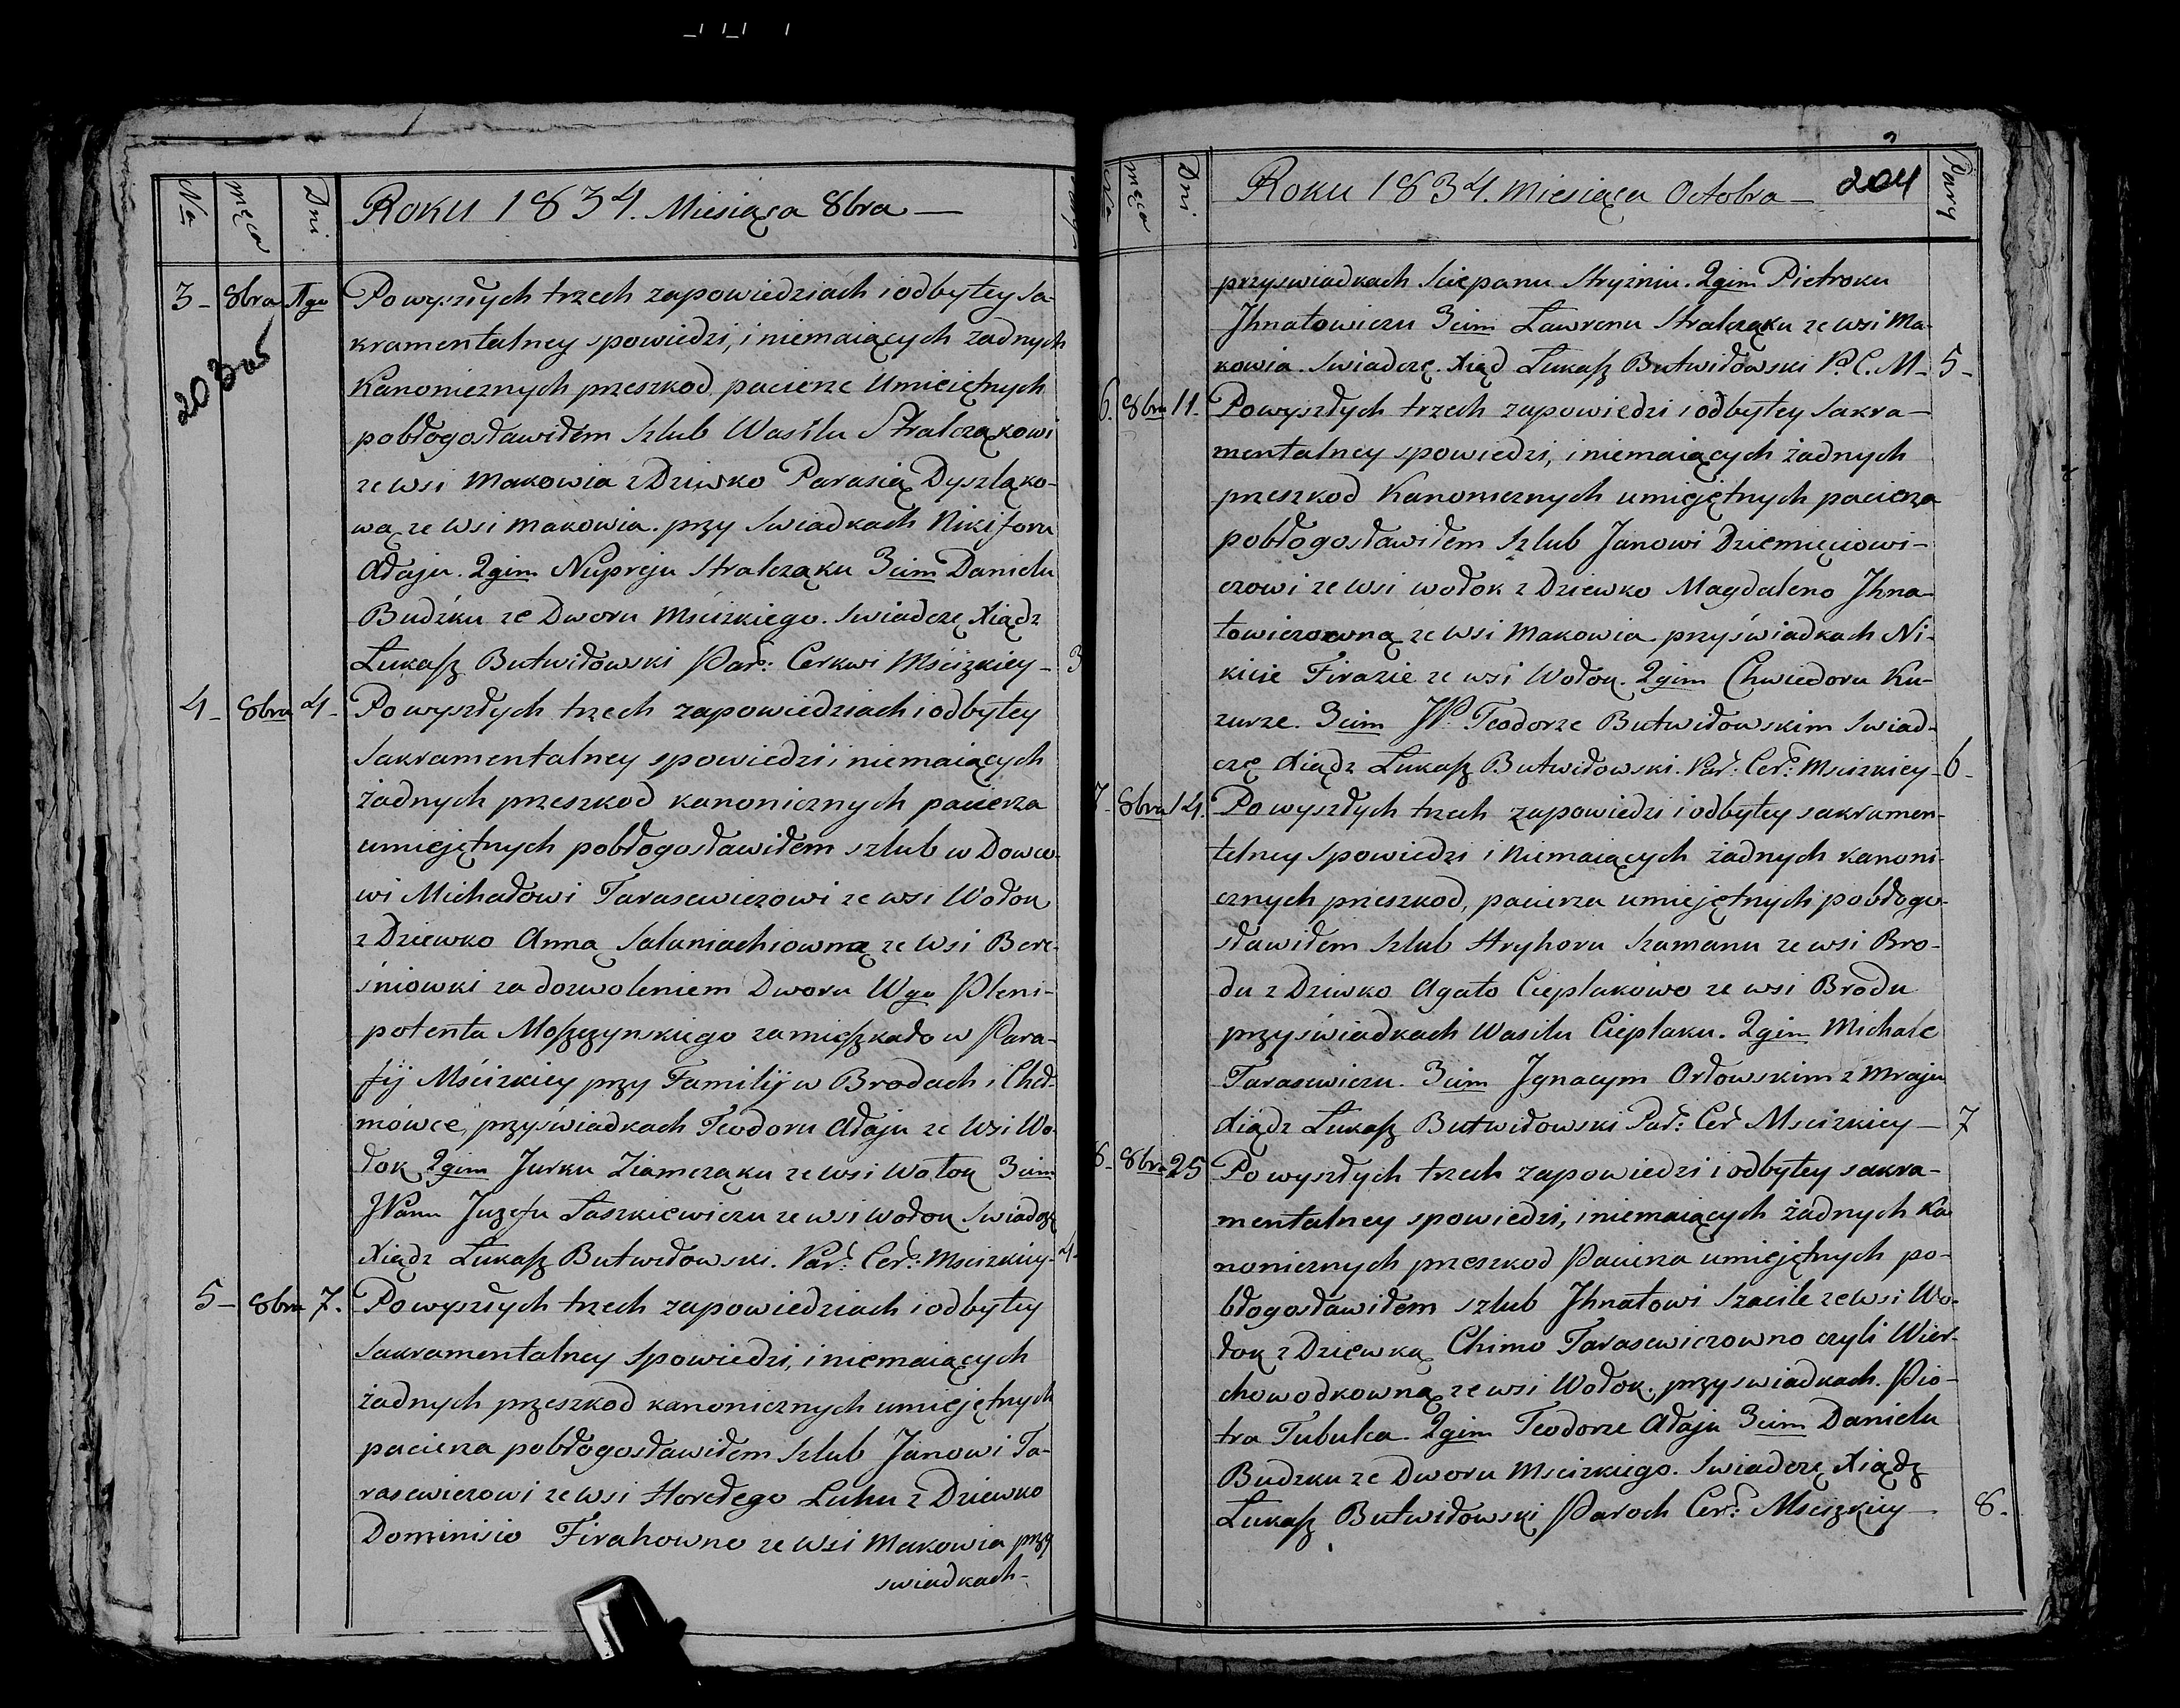 Na męca Dni Roku 1834. Miesiąca 8bra
3 - 8bra 1go Po wyszłych trzech zapowiedziach i odbytey Sa-
203 au
kramentalney spowiedzi, i niemaiących żadnych
Kanonicznych przeszkod pacierze Umieiętnych
pobłogosławiłem Szlub Wasilu Stralcząkowi
ze wsi Makowia z Dziwko Parasią Dyszląko-
wą ze wsi makowia. przy Swiadkach Nikiforu
Ałaju. 2gim Nupreju Stralcząku 3cim Danielu
Budźku ze Dworu Mścizkiego. Swiadczę Xiądz
Łukasz Butwiłowski Par: Cerkwi Mścizkiey - 3
4 - 8bra 4 - Po wyszłych trzech zapowiedziach i odbytey
Sakramentalney spowiedzi i niemaiących
żadnych przeszkod kanonicznych pacierza
umiejętnych pobłogosławiłem szlub w Dowco-
wi Michałowi Tarasewiczowi ze wsi Wołok
z Dziewko Anną Salaniachiowną ze wsi Bere-
śniowki za dozwoleniem Dworu Wgo Pleni-
potenta Moszczynskiego zamieszkało w Para-
fij Mścizkiey przy Familij w Brodach i Cheł-
mówce, przyświadkach Teodoru Ałaju ze wsi Wo-
łok 2gim Jurku Ziamcząku ze wsi Wołok 3cim
JPanu Juzefu Laszkiewiczu ze wsi Wołok Swiadczę
Xiądz Łukasz Butwiłowski. Par: Cer: Mscizkiey - 4
5 - 8bra 7. Po wyszłych trzech zapowiedziach i odbytey
Sakramentalney Spowiedzi, i niemaiących
żadnych przeszkod kanonicznych umiejętnych
pacierza pobłogosławiłem Szlub Janowi Ta-
rasewiczowi ze wsi Horełego Luhu z Dziewko
Dominisio Firahowno ze wsi Makowia przy
swiadkach -
męca Dni Roku 1834. Miesiąca Octobra - 204 Pary
przyswiadkach Sciepanu Stryzniu. 2gim Pietroku
Jhnatowiczu 3cim Ławrenu Stralcząku ze wsi Ma-
kowia. Swiadczę. Xiąd Łukasz Butwiłowski P. C. M - 5 -
6. 8bra 11. Po wyszłych trzech zapowiedzi i odbytey Sakra-
mentalney spowiedzi, i niemaiących żadnych
przeszkod Kanonicznych umiejętnych pacierza
pobłogosławiłem Szlub Janowi Dziemięciowi-
czowi ze wsi wołok z Dziewko Magdaleno Jhna-
towiczowną ze wsi Makowia. przyświadkach Ni-
kicie Firazie ze wsi Wołok. 2gim Chwiedoru Ku-
zurze. 3cim JP. Teodorze Butwiłowskim Swiad-
czę Xiądz Łukasz Butwiłowski. Par: Cer: Mscizkiey - 6 -
7 - 8bra 14. Po wyszłych trzech zapowiedzi i odbytey sakramen-
telney Spowiedzi i niemaiących żadnych kanoni-
cznych przeszkod, pacierza umiejętnych pobłogo-
sławiłem Szlub Hryhoru Szamanu ze wsi Bro-
du z Dziwko Agato Cieplakowo ze wsi Brodu
przyświadkach Wasilu Cieplaku. 2gim Michale
Tarasewiczu. 3cim Jgnacym Orłowskim z Mraju
Xiądz Łukasz Butwiłowski Par: Cer Mscizkiey - 7
8 - 8bra 25 Po wyszłych trzech zapowiedzi i odbytey sakra-
mentalney spowiedzi, i niemaiących żadnych Ka
nonicznych przeszkod Pacierza umiejętnych po-
błogosławiłem szlub Jhnatowi Szacile ze wsi Wo-
łok z Dziewką Chimo Tarasewiczowno czyli Wier-
chowodkowną ze wsi Wołok. przyswiadkach. Pio-
tra Tubulca. 2gim Teodorze Ałaju 3cim Danielu
Budzku ze Dworu Mscizkiego. Swiadczę Xiądz
Łukasz Butwiłowski Paroch Cer: Mscizkiey - 8.